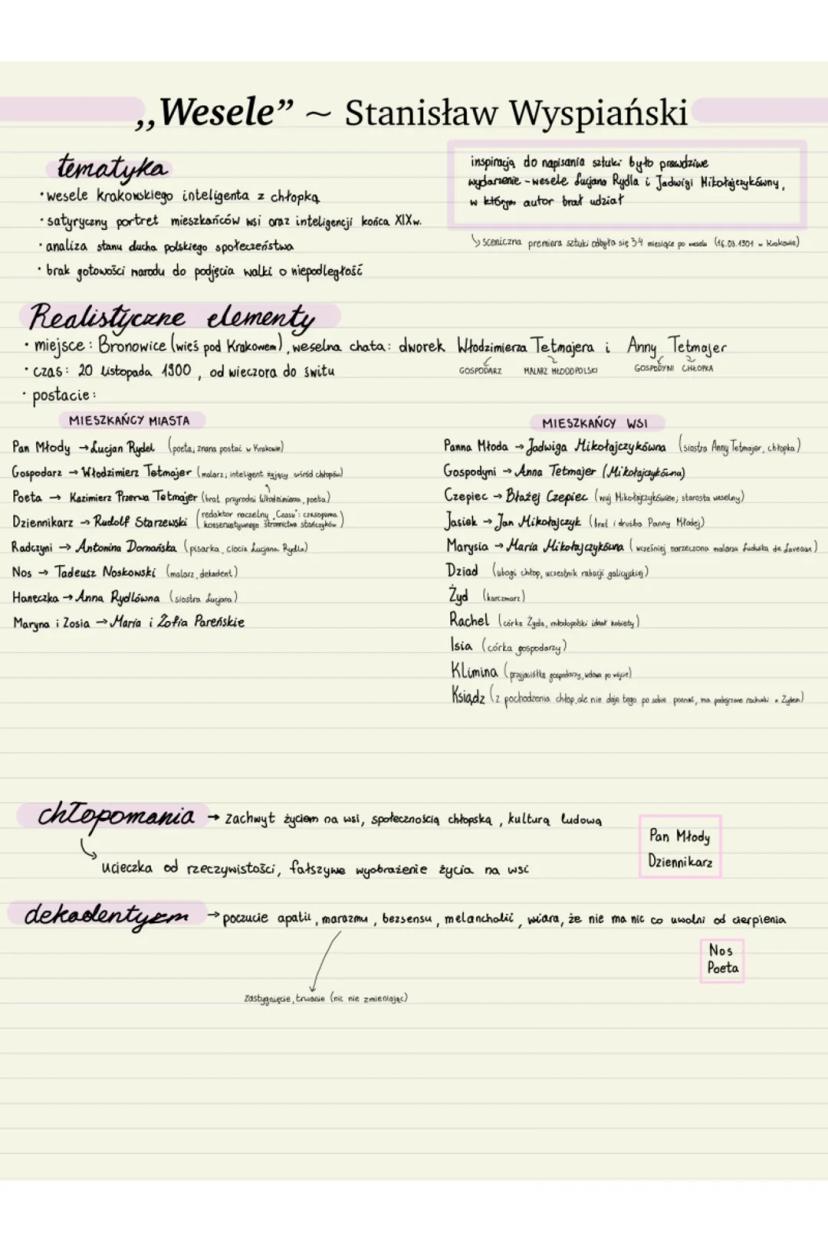 „Wesele” ~ Stanisław Wyspiański
tematyka
• wesele krakowskiego inteligenta z chłopką
• satyryczny portret mieszkańców wsi oraz inteligencji końca XIXw.
• analiza stanu ducha polskiego społeczeństwa
• brak gotowości narodu do podjęcia walki o niepodległość
inspiracją do napisania sztuki było prawdziwe
wydarzenie - wesele Lucjana Rydla i Jadwigi Mikołajczykówny,
w którym autor brał udział
↳ sceniczna premiera sztuki odbyła się 3-4 miesiące po weselu (16.03.1901 w Krakowie)
Realistyczne elementy
• miejsce: Bronowice (wieś pod Krakowem), weselna chata: dworek Włodzimierza Tetmajera i Anny Tetmajer
GOSPODARZ MALARZ MŁODOPOLSKI GOSPODYNI CHŁOPKA
• czas: 20 listopada 1900, od wieczora do świtu
• postacie:
MIESZKAŃCY MIASTA
Pan Młody → Lucjan Rydel (poeta, znana postać w Krakowie)
Gospodarz → Włodzimierz Tetmajer (malarz, inteligent żyjący wśród chłopów)
Poeta → Kazimierz Przerwa Tetmajer (brat przyrodni Włodzimierza, poeta)
Dziennikarz → Rudolf Starzewski (redaktor naczelny „Czasu”: czasopisma
konserwatywnego stronnictwa stańczyków)
Radczyni → Antonina Domańska (pisarka, ciocia Lucjana Rydla)
Nos → Tadeusz Noskowski (malarz, dekadent)
Haneczka → Anna Rydlówna (siostra Lucjana)
Maryna i Zosia → Maria i Zofia Pareńskie
MIESZKAŃCY WSI
Panna Młoda → Jadwiga Mikołajczykówna (siostra Anny Tetmajer, chłopka)
Gospodyni → Anna Tetmajer (Mikołajczykówna)
Czepiec → Błażej Czepiec (wuj Mikołajczykówien, starosta weselny)
Jasiek → Jan Mikołajczyk (brat i drużba Panny Młodej)
Marysia → Maria Mikołajczykówna (wcześniej narzeczona malarza Ludwika de Laveaux)
Dziad (ubogi chłop, uczestnik rabacji galicyjskiej)
Żyd (karczmarz)
Rachel (córka Żyda, młodopolski ideał kobiety)
Isia (córka gospodarzy)
Klimina (przyjaciółka gospodarzy, wdowa po wójcie)
Ksiądz (z pochodzenia chłop, ale nie daje tego po sobie poznać, ma podejrzane rachunki z Żydem)
chłopomania → zachwyt życiem na wsi, społecznością chłopską, kulturą ludową
ucieczka od rzeczywistości, fałszywe wyobrażenie życia na wsi
Pan Młody
Dziennikarz
dekadentyzm → poczucie apatii, marazmu, bezsensu, melancholii, wiara, że nie ma nic co uwolni od cierpienia
Nos
Poeta
zastygnięcie, trwanie (nic nie zmieniając)